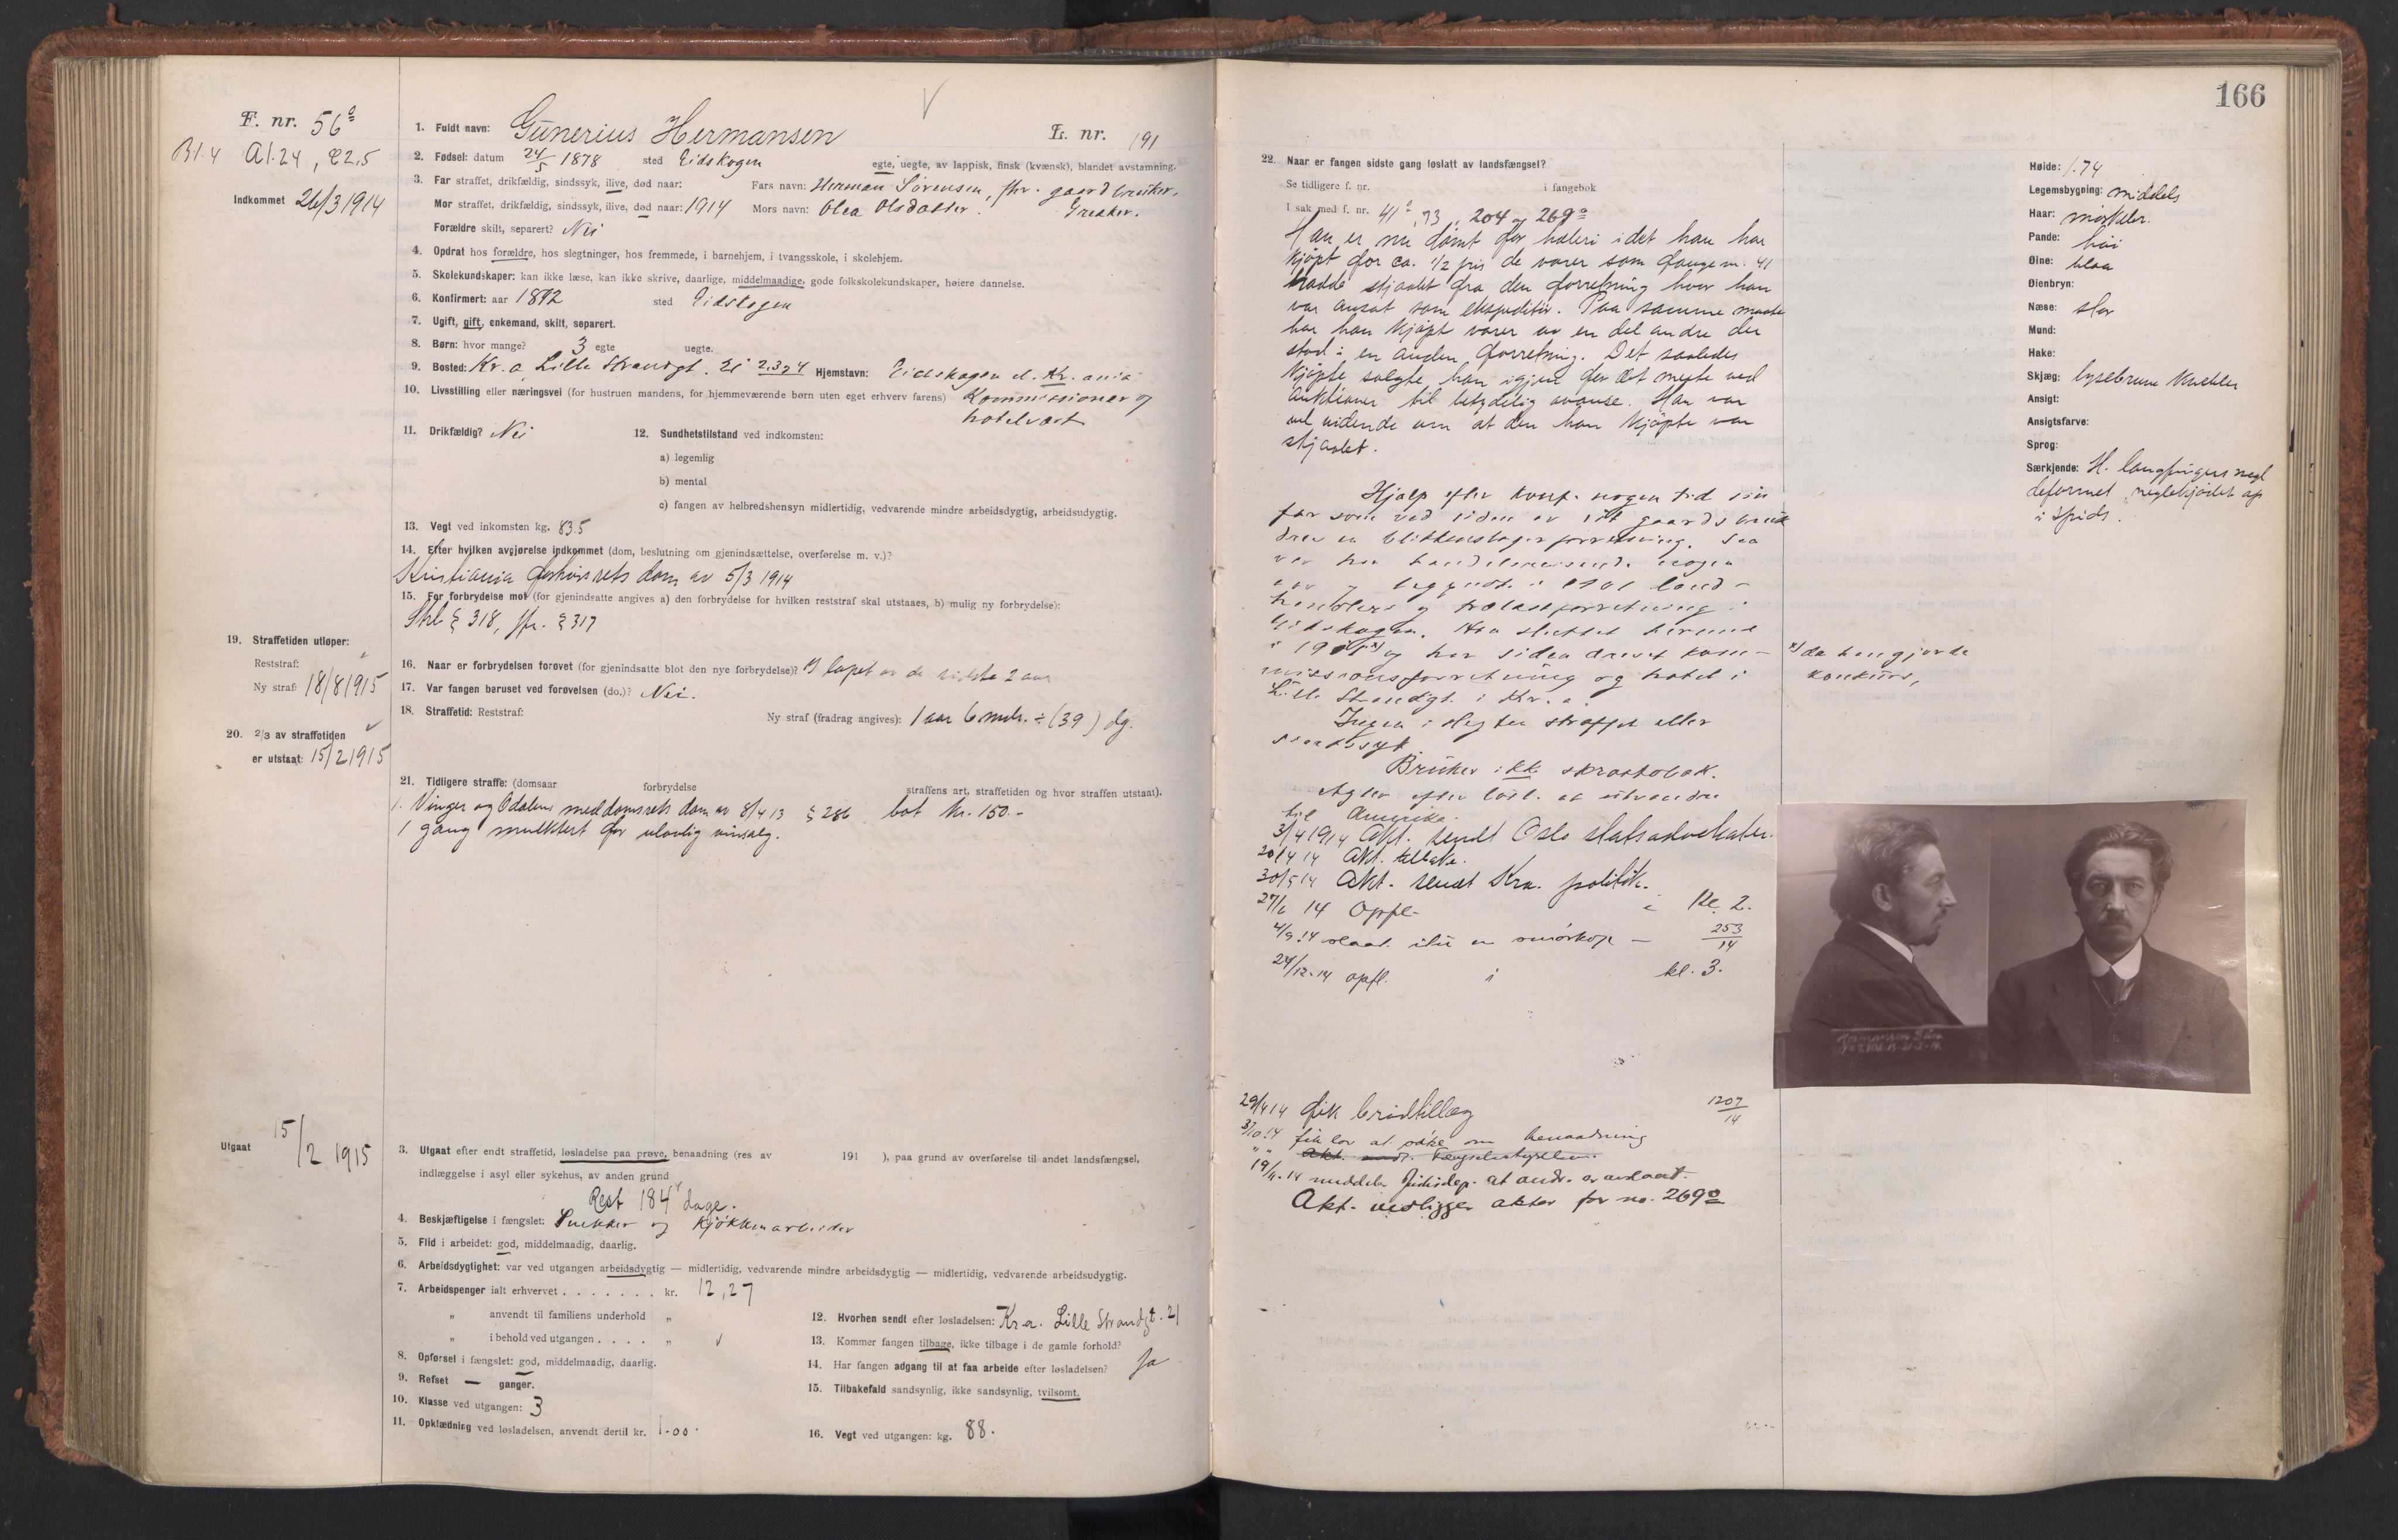 F. nr. 56a
B1.4 A1.24, C2.5
Indkommet 26/3 1914
1. Fuldt navn: Gunerius Hermansen L. nr. 191
2. Fødsel: datum 24/5 1878 sted Eidskogen egte, uegte, av lappisk, finsk (kvænsk), blandet avstamning.
3. Far straffet, drikfældig, sindssyk, ilive, død naar: Fars navn: Herman Sørensen, fhv. gaardbruker,
Mor straffet, drikfældig, sindssyk, ilive, død naar: 1914 Mors navn: Olea Olsdatter.
Forældre skilt, separert? Nei
4. Opdrat hos forældre, hos slegtninger, hos fremmede, i barnehjem, i tvangsskole, i skolehjem.
5. Skolekundskaper: kan ikke læse, kan ikke skrive, daarlige, middelmaadige, gode folkskolekundskaper, høiere dannelse.
6. Konfirmert: aar 1892 sted Eidskogen
7. Ugift, gift, enkemand, skilt, separert.
8. Børn: hvor mange? 3 egte uegte.
9. Bosted: Kr.a, Lille Strandgt. 21 2.3 7 4 Hjemstavn: Eidskogen el. Kr.ania
10. Livsstilling eller næringsvei (for hustruen mandens, for hjemmeværende børn uten eget erhverv farens) Kommissionær og
hotelvært
11. Drikfældig? Nei 12. Sundhetstilstand ved indkomsten:
a) legemlig
b) mental
c) fangen av helbredshensyn midlertidig, vedvarende mindre arbeidsdygtig, arbeidsudygtig.
13. Vegt ved inkomsten kg. 83.5
14. Efter hvilken avgjørelse indkommet (dom, beslutning om gjenindsættelse, overførelse m. v.)?
Kristiania forhørsrets dom av 5/3 1914
15. For forbrydelse mot (for gjenindsatte angives a) den forbrydelse for hvilken reststraf skal utstaaes, b) mulig ny forbrydelse):
Strl § 318, jfr. § 317
19. Straffetiden utløper:
Reststraf:
Ny straf: 18/8 1915
16. Naar er forbrydelsen forøvet (for gjenindsatte blot den nye forbrydelse)? I løpet av de sidste 2 aar
17. Var fangen beruset ved forøvelsen (do.)? Nei.
18. Straffetid: Reststraf: Ny straf (fradrag angives): 1 aar 6 mdr. ÷ (39) dg.
20. 2/3 av straffetiden
er utstaat: 15/2 1915
21. Tidligere straffe: (domsaar forbrydelse straffens art, straffetiden og hvor straffen utstaat).
1. Vinger og Odalens meddomsrets dom av 8/4 13 § 286 bot kr. 150.-
1 gang mulktert for ulovlig vinsalg.
Utgaat 15/2 1915
3. Utgaat efter endt straffetid, løsladelse paa prøve, benaadning (res av 191 ), paa grund av overførelse til andet landsfængsel,
indlæggelse i asyl eller sykehus, av anden grund
Rest 184 dage.
4. Beskjæftigelse i fængslet: Snekker og kjøkkenarbeider
5. Flid i arbeidet: god, middelmaadig, daarlig.
6. Arbeidsdygtighet: var ved utgangen arbeidsdygtig — midlertidig, vedvarende mindre arbeidsdygtig — midlertidig, vedvarende arbeidsudygtig.
7. Arbeidspenger ialt erhvervet . . . . . . . kr. 12,27
„ anvendt til familiens underhold „
„ i behold ved utgangen . . . . „
8. Opførsel i fængslet: god, middelmaadig, daarlig.
9. Refset — ganger.
10. Klasse ved utgangen: 3
11. Opklædning ved løsladelsen, anvendt dertil kr. 1.00
12. Hvorhen sendt efter løsladelsen: Kr.a. Lille Strandgt. 21
13. Kommer fangen tilbage, ikke tilbage i de gamle forhold?
14. Har fangen adgang til at faa arbeide efter løsladelsen? Ja
15. Tilbakefald sandsynlig, ikke sandsynlig, tvilsomt.
16. Vegt ved utgangen: kg. 88.
166
22. Naar er fangen sidste gang løslatt av landsfængsel?
Se tidligere f. nr. i fangebok
I sak med f. nr. 41a, 73, 204 og 269a
Han er nu dømt for hæleri idet han har
kjøpt for ca. 1/2 pris de varer som fange nr. 41
hadde stjaalet fra den forretning hvor han
var ansat som ekspeditør. Paa samme maate
har han kjøpt varer av en del andre der
stod i en anden forretning. Det saaledes
kjøpte solgte han igjen for det meste ved
auktioner til betydelig avanse. Han var
vel vidende om at den han kjøpte var
stjaalet.
Hjalp efter konf. nogen tid sin
far som ved siden av sit gaardsbruk
drev en blikkenslagerforretning. Saa
var han handelsreisende nogen
aar og begyndte i 1901 land-
handleri og trælastforretning i
Eidskogen. Han sluttet hermed
og har siden drevet kom-
missionsforretning og hotel i
Lille Strandgt. i Kr.a.
x) da han gjorde
konkurs,
Ingen i slegten straffet eller
sindssyk.
Bruker ikke skraatobak.
Agter efter løsl. at utvandre
til Amerika.
3/4 1914 Akt. sendt Oslo statsadvokater.
20/4 14 Akt. tilbake.
30/5 14 Akt. sendt Kra. politik.
27/6 14 Oppfl. i Kl. 2.
4/9.14 slaat itu en 253/14
24/12.14 opfl. i kl. 3.
29/4 14 fik brødtillæg 1207/14
3/10.14 fik lov at søke om benaadning
" " Akt. sendt Fængselsstyrelsen.
19/11.14 meddelte Justisdep. at andr. er avslaat.
Akt. vedligger akter for no. 269a
Høide: 1.74
Legemsbygning: middels
Haar: mørkebr.
Pande: høi
Øine: blaa
Øienbryn:
Næse: stor
Mund:
Hake:
Skjæg: lysebrune knebler
Ansigt:
Ansigtsfarve:
Sprog:
Særkjende: H. langfingers negl
deformet, neglekjødet op
i spids.